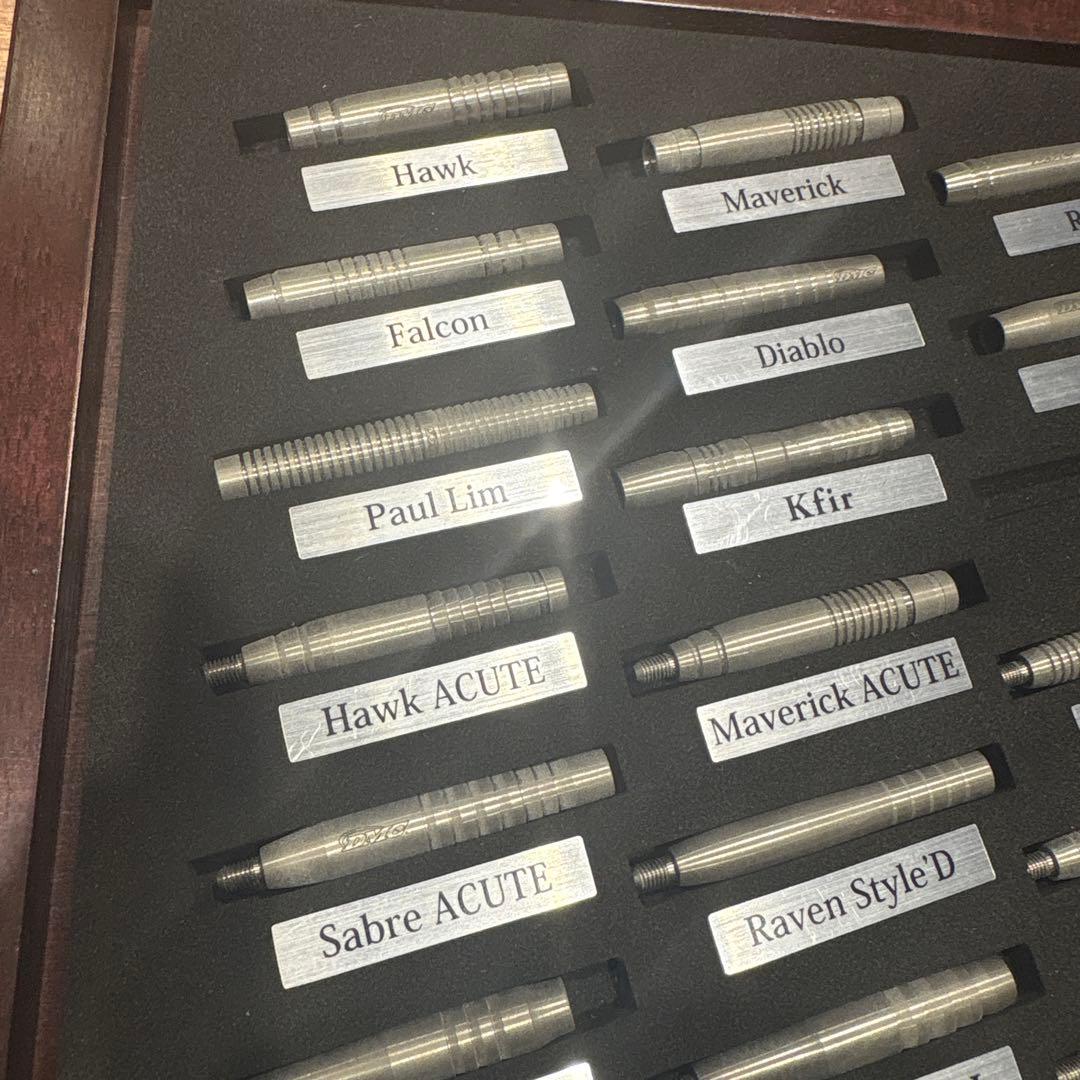 Hawk
Maverick
Falcon
Diablo
Paul Lim
Kfir
Hawk ACUTE
Maverick ACUTE
Sabre ACUTE
Raven Style'D